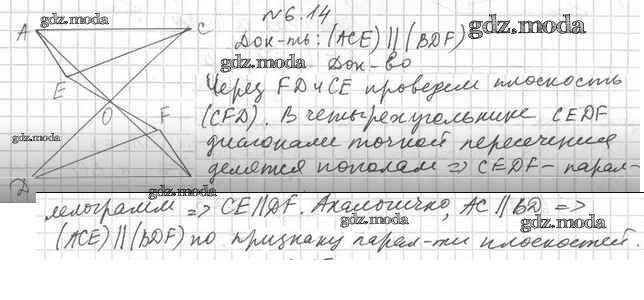 №6.14
A
gdz.moda
C
Док-ть: (ACE) || (BDF)
gdz.moda
gdz.moda
Док-во
Через FD и CE проведем плоскость
E
(CFD). В четырехугольнике CEDF
O
F
диагонали точкой пересечения
gdz.moda
делятся пополам => CEDF - парал-
D
gdz.moda
лелограмм => CE || DF. Аналогично, AC || BD =>
gdz.moda
gdz.moda
(ACE) || (BDF) по признаку парал-ти плоскостей.